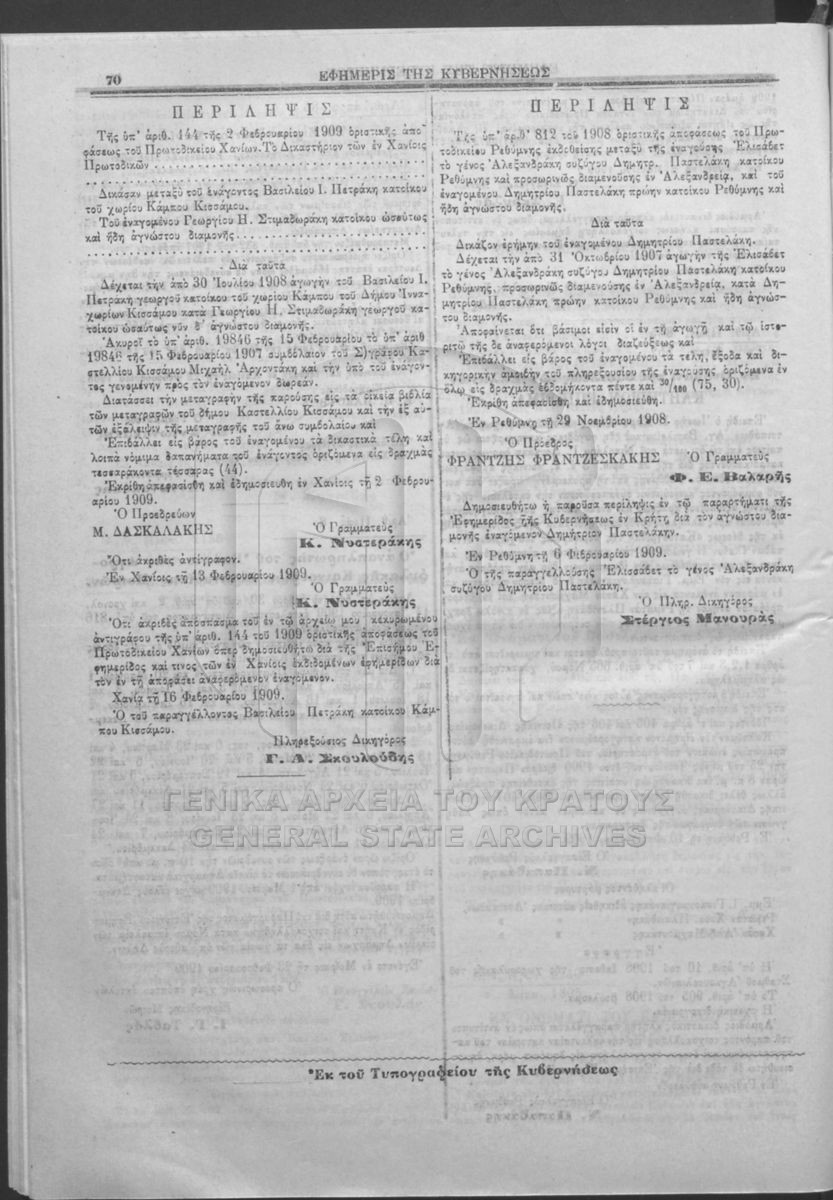 70
ΕΦΗΜΕΡΙΣ ΤΗΣ ΚΥΒΕΡΝΗΣΕΩΣ
ΠΕΡΙΛΗΨΙΣ
Τῆς ὑπ' ἀριθ. 144 τῆς 2 Φεβρουαρίου 1909 ὁριστικῆς ἀπο-
φάσεως τοῦ Πρωτοδικείου Χανίων. Τὸ Δικαστήριον τῶν ἐν Χανίοις
Πρωτοδικῶν
Δικάσαν μεταξὺ τοῦ ἐνάγοντος Βασιλείου Ι. Πετράκη κατοίκου
τοῦ χωρίου Κάμπου Κισσάμου.
Τοῦ ἐναγομένου Γεωργίου Η. Στιμαδωράκη κατοίκου ὡσαύτως
καὶ ἤδη ἀγνώστου διαμονῆς
Διὰ ταῦτα
Δέχεται τὴν ἀπὸ 30 Ἰουλίου 1908 ἀγωγὴν τοῦ Βασιλείου Ι.
Πετράκη γεωργοῦ κατοίκου τοῦ χωρίου Κάμπου τοῦ Δήμου Ἰννα-
χωρίων Κισσάμου κατὰ Γεωργίου Η. Στιμαδωράκη γεωργοῦ κα-
τοίκου ὡσαύτως νῦν δ' ἀγνώστου διαμονῆς.
Ἀκυροῖ τὸ ὑπ' ἀριθ. 19846 τῆς 15 Φεβρουαρίου τὸ ὑπ' ἀριθ
19846 τῆς 15 Φεβρουαρίου 1907 συμβόλαιον τοῦ Σ)γράφου Κα-
στελλίου Κισσάμου Μιχαὴλ Ἀρχοντάκη καὶ τὴν ὑπὸ τοῦ ἐνάγον-
τος γενομένην πρὸς τὸν ἐναγόμενον δωρεάν.
Διατάσσει τὴν μεταγραφὴν τῆς παρούσης εἰς τὰ οἰκεῖα βιβλία
τῶν μεταγραφῶν τοῦ δήμου Καστελλίου Κισσάμου καὶ τὴν ἐξ αὐ-
τῶν ἐξάλειψιν τῆς μεταγραφῆς τοῦ ἄνω συμβολαίου καὶ
Ἐπιβάλλει εἰς βάρος τοῦ ἐναγομένου τὰ δικαστικὰ τέλη καὶ
λοιπὰ νόμιμα δαπανήματα τοῦ ἐνάγοντος ὁριζόμενα εἰς δραχμὰς
τεσσαράκοντα τέσσαρας (44).
Ἐκρίθη ἀπεφασίσθη καὶ ἐδημοσιεύθη ἐν Χανίοις τῇ 2 Φεβρου-
αρίου 1909.
Ὁ Προεδρεύων
Μ. ΔΑΣΚΑΛΑΚΗΣ
Ὁ Γραμματεὺς
Κ. Νυστεράκης
Ὅτι ἀκριβὲς ἀντίγραφον.
Ἐν Χανίοις τῇ 13 Φεβρουαρίου 1909.
Ὁ Γραμματεὺς
Κ. Νυστεράκης
Ὅτι ἀκριβὲς ἀπόσπασμα τοῦ ἐν τῷ ἀρχείῳ μου κεκυρωμένου
ἀντιγράφου τῆς ὑπ' ἀριθ. 144 τοῦ 1909 ὁριστικῆς ἀποφάσεως τοῦ
Πρωτοδικείου Χανίων ὅπερ δημοσιευθήτω διὰ τῆς Ἐπισήμου Ἐ-
φημερίδος καί τινος τῶν ἐν Χανίοις ἐκδιδομένων ἐφημερίδων διὰ
τὸν ἐν τῇ ἀποφάσει ἀναφερόμενον ἐναγόμενον.
Χανία τῇ 16 Φεβρουαρίου 1909.
Ὁ τοῦ παραγγέλλοντος Βασιλείου Πετράκη κατοίκου Κάμ-
που Κισσάμου.
Πληρεξούσιος Δικηγόρος
Γ. Α. Σκουλούδης
ΠΕΡΙΛΗΨΙΣ
Τῆς ὑπ' ἀριθ' 812 τοῦ 1908 ὁριστικῆς ἀποφάσεως τοῦ Πρω-
τοδικείου Ρεθύμνης ἐκδοθείσης μεταξὺ τῆς ἐναγούσης Ἐλισάβετ
τὸ γένος Ἀλεξανδράκη συζύγου Δημητρ. Παστελάκη κατοίκου
Ρεθύμνης καὶ προσωρινῶς διαμενούσης ἐν Ἀλεξανδρείᾳ, καὶ τοῦ
ἐναγομένου Δημητρίου Παστελάκη πρώην κατοίκου Ρεθύμνης καὶ
ἤδη ἀγνώστου διαμονῆς.
Διὰ ταῦτα
Δικάζον ἐρήμην τοῦ ἐναγομένου Δημητρίου Παστελάκη.
Δέχεται τὴν ἀπὸ 31 Ὀκτωβρίου 1907 ἀγωγὴν τῆς Ἐλισάβετ
τὸ γένος Ἀλεξανδράκη συζύγου Δημητρίου Παστελάκη κατοίκου
Ρεθύμνης, προσωρινῶς διαμενούσης ἐν Ἀλεξανδρείᾳ, κατὰ Δη-
μητρίου Παστελάκη πρώην κατοίκου Ρεθύμνης καὶ ἤδη ἀγνώσ-
του διαμονῆς.
Ἀποφαίνεται ὅτι βάσιμοι εἰσὶν οἱ ἐν τῇ ἀγωγῇ καὶ τῷ ἱστο-
ριτῷ τῆς δε ἀναφερόμενοι λόγοι διαζεύξεως καὶ
Ἐπιβάλλει εἰς βάρος τοῦ ἐναγομένου τὰ τέλη, ἔξοδα καὶ δι-
κηγορικὴν ἀμοιβὴν τοῦ πληρεξουσίου τῆς ἐναγούσης ὁριζόμενα ἐν
ὅλῳ εἰς δραχμὰς ἑβδομήκοντα πέντε καὶ 30/100 (75, 30).
Ἐκρίθη ἀπεφασίσθη καὶ ἐδημοσιεύθη.
Ἐν Ρεθύμνῃ τῇ 29 Νοεμβρίου 1908.
Ὁ Πρόεδρος
ΦΡΑΝΤΖΗΣ ΦΡΑΝΤΖΕΣΚΑΚΗΣ
Ὁ Γραμματεὺς
Φ. Ε. Βαλαρῆς
Δημοσιευθήτω ἡ παροῦσα περίληψις ἐν τῷ παραρτήματι τῆς
Ἐφημερίδος τῆς Κυβερνήσεως ἐν Κρήτῃ διὰ τὸν ἀγνώστου δια-
μονῆς ἐναγόμενον Δημήτριον Παστελάκην.
Ἐν Ρεθύμνῃ τῇ 6 Φεβρουαρίου 1909.
Ὁ τῆς παραγγελλούσης Ἐλισσάβετ τὸ γένος Ἀλεξανδράκη
συζύγου Δημητρίου Παστελάκη.
Ὁ Πληρ. Δικηγόρος
Στέργιος Μανουρᾶς
ΓΕΝΙΚΑ ΑΡΧΕΙΑ ΤΟΥ ΚΡΑΤΟΥΣ
GENERAL STATE ARCHIVES
Ἐκ τοῦ Τυπογραφείου τῆς Κυβερνήσεως